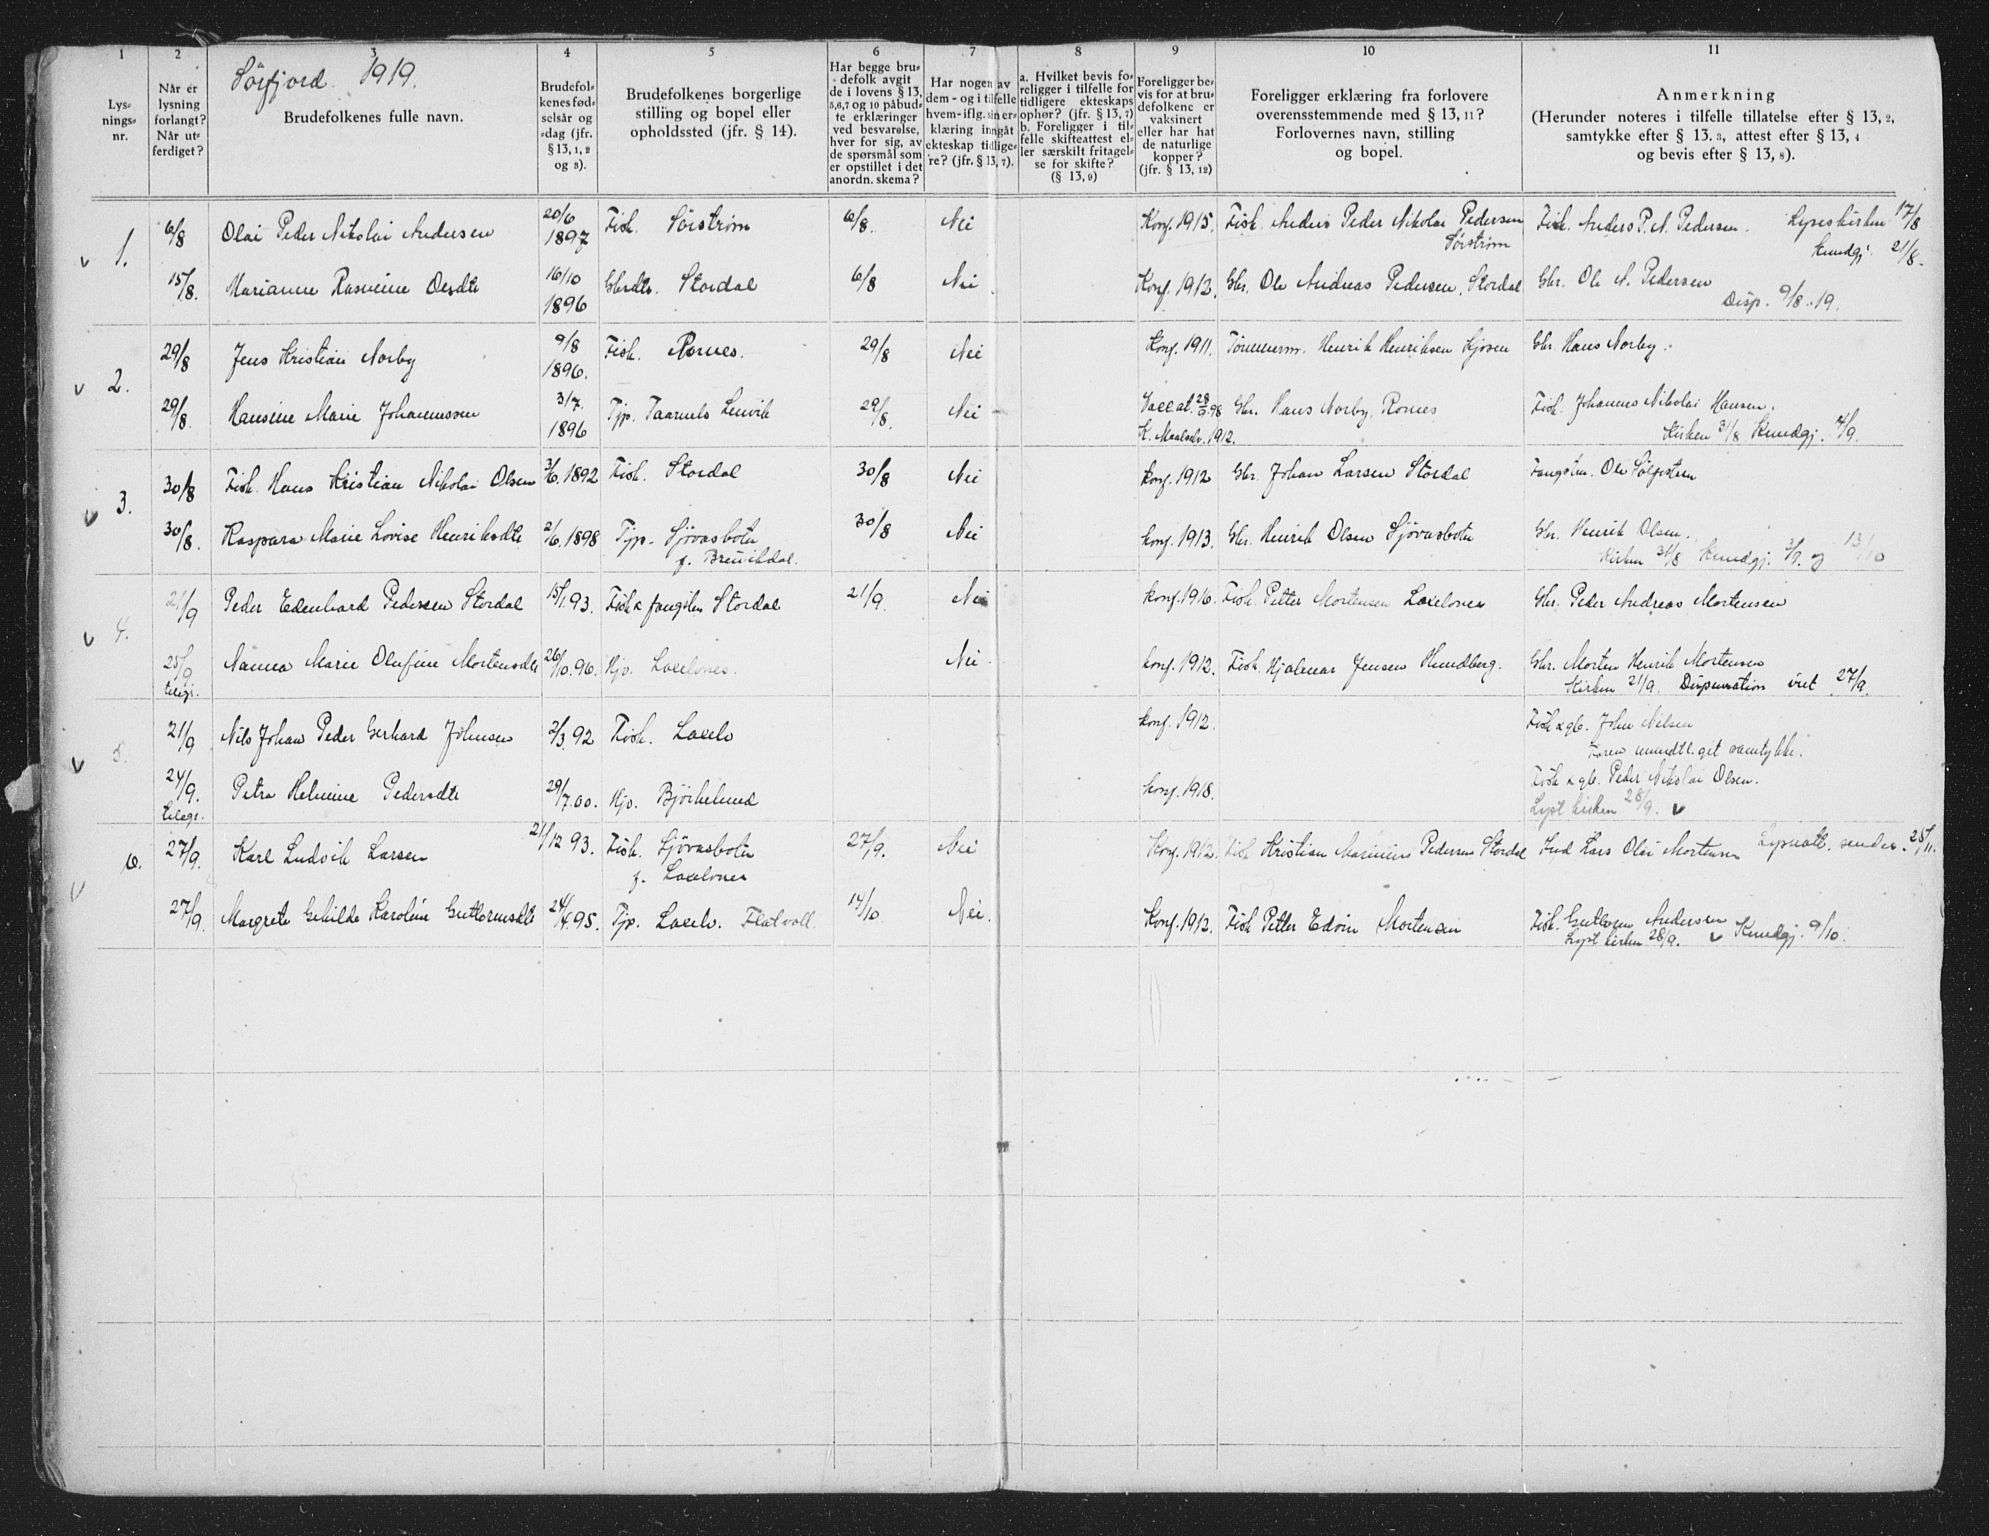 1 2 3 4 5 6 7 8 9 10 11
Sörfjord 1919.
Lys-
nings-
nr.
Når er
lysning
forlangt?
Når ut-
ferdiget?
Brudefolkenes fulle navn.
Brudefol-
kenes fød-
selsår og
-dag (jfr.
§ 13, 1, 2
og 3).
Brudefolkenes borgerlige
stilling og bopel eller
opholdssted (jfr. § 14).
Har begge bru-
defolk avgit
de i lovens § 13,
5,6,7 og 10 påbud-
te erklæringer
ved besvarelse,
hver for sig, av
de spørsmål som
er opstillet i det
anordn. skema?
Har nogen av
dem - og i tilfelle
hvem - iflg. sin er-
klæring inngåt
ekteskap tidlige-
re? (jfr. § 13, 7).
a. Hvilket bevis fo-
religger i tilfelle for
tidligere ekteskaps
ophør? (jfr. § 13, 7)
b. Foreligger i til-
felle skifteattest el-
ler særskilt fritagel-
se for skifte?
(§ 13, 9)
Foreligger be-
vis for at bru-
defolkene er
vaksinert
eller har hat
de naturlige
kopper?
(jfr. § 13, 12)
Foreligger erklæring fra forlovere
overensstemmende med § 13, 11?
Forlovernes navn, stilling
og bopel.
Anmerkning
(Herunder noteres i tilfelle tillatelse efter § 13, 2,
samtykke efter § 13. 3, attest efter § 13, 4
og bevis efter § 13, 8).
v 1. 6/8 Olai Peder Nikolai Andersen 20/6 1897 Fisk. Sörström 6/8. Nei Konf. 1915. Fisk. Anders Peder Nikolai Pedersen Sörström Fisk. Anders P. N. Pedersen. 17/8
Kundgj. 21/8.
15/8. Marianne Rasmine Olsdtr 16/10 1896 Gbrdtr. Stordal 6/8 Nei Konf. 1912. Gbr. Ole Andreas Pedersen, Stordal Gbr. Ole A. Pedersen
Disp. 9/8.-19.
v 2. 29/8 Jens Kristian Norby 9/8 1896. Fisk. Rornes. 29/8 Nei Konf. 1911. Tömmerm. Henrik Henriksen Gbr. Hans Norby.
29/8. Hansine Marie Johannessen 3/7. 1896 Tjp. Lenvik 29/8. Nei Vaccat. 28/9.98 Gbr. Hans Norby, Rornes Fisk. Johannes Nikolai Hansen.
K. Maalselv. 1912. Kirken 31/8 Kundgj. 4/9.
v 3. 30/8 Fisk. Hans Kristian Nikolai Olsen 3/6. 1892 Fisk. Stordal 30/8 Nei konf. 1912 Gbr. Johan Larsen Stordal
30/8. Kaspara Marie Lovise Henriksdtr 2/6. 1898 Tjp. Sjövasbotn 30/8 Nei konf. 1913. Gbr. Henrik Olsen Sjövasbotn Gbr. Henrik Olsen.
f. Breivikdal. Kirken 31/8 Kundgj. 3/9. og 13/10
v 4. 21/9 Peder Edenhard Pedersen Stordal 15/1.93. Fisk & fangstm Stordal 21/9. Nei konf. 1916. Fisk. Petter Mortensen Lakselvnes Gbr. Peder Andreas Mortensen
25/9 telegr. Nanna Marie Olufine Mortensdtr 26/10.96. Hjv. Lakselvnes. Nei konf. 1912. Fisk. Hjalmar Jensen Hundberg. Gbr. Morten Henrik Mortensen
Kirken 21/9. Dispensation 27/9.
v 5. 21/9 Nils Johan Peder Gerhard Johnsen 2/3.92 Fisk. Lakselv konf. 1912. Fisk & gb. John Nilsen
mundtl. git samtykke.
24/9. telegr. Petra Helmine Pedersdtr 29/7.00. Hjv. konf. 1918. Fisk & gb. Peder Nikolai Olsen.
Lyst kirken 28/9. v
v 6. 27/9. Karl Ludvik Larsen 21/12 93. Fisk. Sjövasbotn 27/9. Nei Konf. 1912. Fisk Kristian Pedersen Stordal Lars Olai Mortensen
f. Lakselvnes
27/9. Margrete Karoline Guttormsdtr 24/4.95. Tjp. Lakselv. Flatvoll. 14/10 Nei. Konf. 1912. Fisk Petter Edvin Mortensen Fisk. Guttorm Andersen
Lyst kirken 28/9. v Kundgj. 9/10.